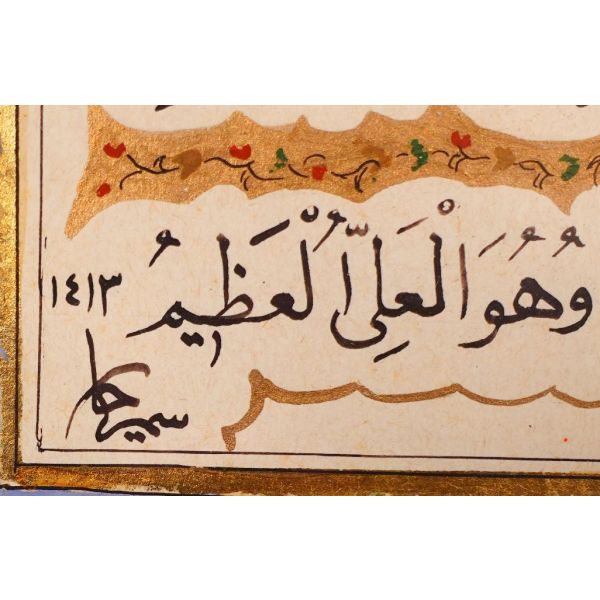 وَهُوَ الْعَلِىُّ الْعَظِيمُ
١٤١٣
سمير